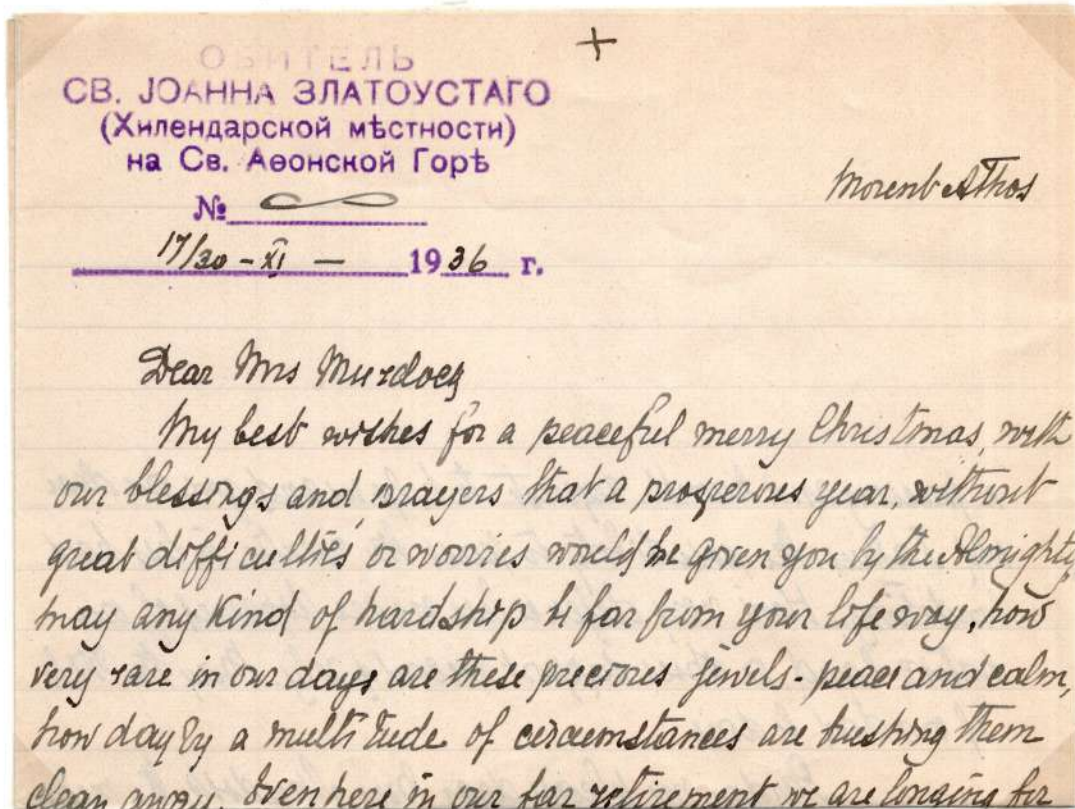 +
ОБИТЕЛЬ
СВ. ІОАННА ЗЛАТОУСТАГО
(Хилендарской мѣстности)
на Св. Аѳонской Горѣ
№
17/30 - XI — 1936 г.
Mount Athos
Dear Mrs Murdoch
My best wishes for a peaceful merry Christmas, with
our blessings and prayers that a prosperous year, without
great difficulties or worries would be given you by the Almighty
may any kind of hardship be far from your life way, how
very rare in our days are these precious jewels - peace and calm,
how day by a multitude of circumstances are them
clean away. Even here in our far retirement we are longing for